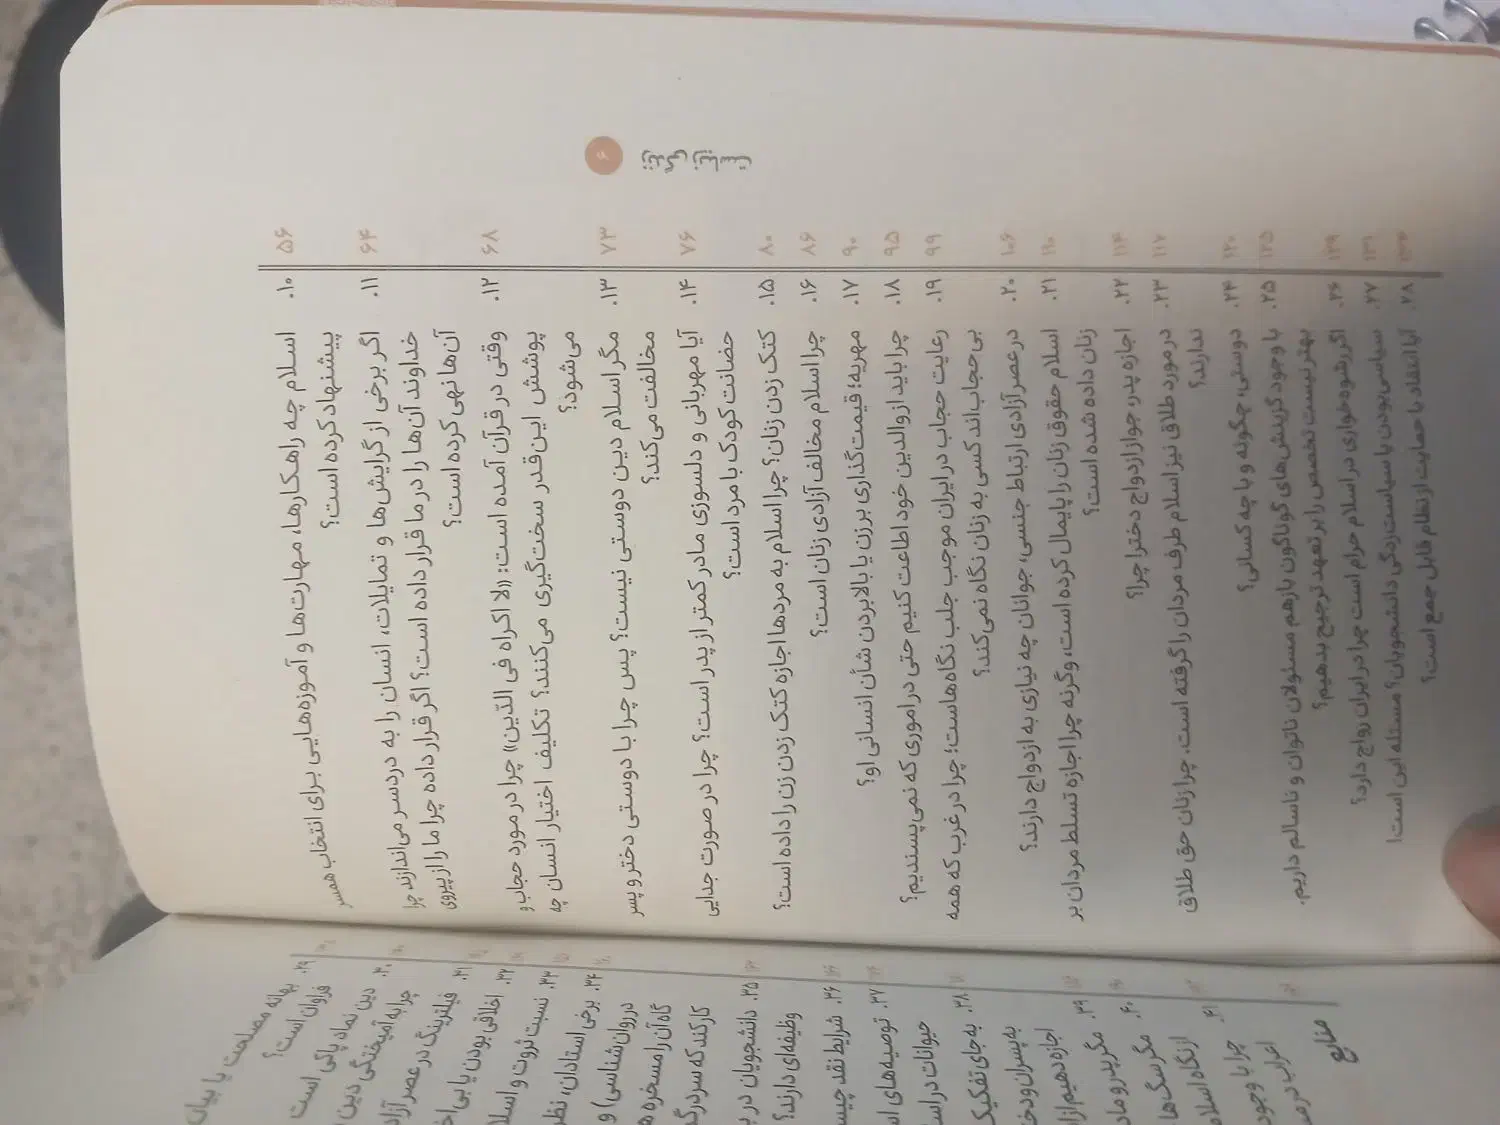 ۶
۵۶
۱۰. اسلام چه راهکارها، مهارت‌ها و آموزه‌هایی برای انتخاب همسر
پیشنهاد کرده است؟
۶۴
۱۱. اگر برخی از گرایش‌ها و تمایلات، انسان را به دردسر می‌اندازند چرا
خداوند آن‌ها را در ما قرار داده است؟ اگر قرار داده چرا ما را از پیروی
آن‌ها نهی کرده است؟
۶۸
۱۲. وقتی در قرآن آمده است: «لا اکراه فی الدّین» چرا در مورد حجاب و
پوشش این‌قدر سخت‌گیری می‌کنند؟ تکلیف اختیار انسان چه
می‌شود؟
۷۳
۱۳. مگر اسلام دین دوستی نیست؟ پس چرا با دوستی دختر و پسر
مخالفت می‌کند؟
۷۶
۱۴. آیا مهربانی و دلسوزی مادر کمتر از پدر است؟ چرا در صورت جدایی
حضانت کودک با مرد است؟
۸۰
۱۵. کتک زدن زنان؟ چرا اسلام به مردها اجازه کتک زدن زن را داده است؟
۸۶
۱۶. چرا اسلام مخالف آزادی زنان است؟
۹۰
۱۷. مهریه؛ قیمت‌گذاری بر زن یا بالا بردن شأن انسانی او؟
۹۵
۱۸. چرا باید از والدین خود اطاعت کنیم حتی در اموری که نمی‌پسندیم؟
۹۹
۱۹. رعایت حجاب در ایران موجب جلب نگاه‌هاست؛ چرا در غرب که همه
بی‌حجاب‌اند کسی به زنان نگاه نمی‌کند؟
۱۰۶
۲۰. در عصر آزادی ارتباط جنسی، جوانان چه نیازی به ازدواج دارند؟
۱۱۰
۲۱. اسلام حقوق زنان را پایمال کرده است، وگرنه چرا اجازه تسلط مردان بر
زنان داده شده است؟
۱۱۴
۲۲. اجازه پدر، جواز ازدواج دختر! چرا؟
۱۱۷
۲۳. در مورد طلاق نیز اسلام طرف مردان را گرفته است. چرا زنان حق طلاق
ندارند؟
۱۲۰
۲۴. دوستی، چگونه و با چه کسانی؟
۱۲۵
۲۵. با وجود گزینش‌های گوناگون باز هم مسئولان ناتوان و ناسالم داریم.
بهتر نیست تخصص را بر تعهد ترجیح بدهیم؟
۱۲۹
۲۶. اگر رشوه‌خواری در اسلام حرام است چرا در ایران رواج دارد؟
۱۳۱
۲۷. سیاسی بودن یا سیاست‌زدگی دانشجویان؟ مسئله این است!
۲۸. آیا انتقاد با حمایت از نظام قابل جمع است؟
۲۹. بهانه مصلحت یا بیان
فراوان است؟
۳۰. دین نماد پاکی است
چرا به آمیختگی دین
۳۱. فیلترینگ در عصر آزاد
۳۲. اخلاقی بودن یا بی‌اخ
۳۳. نسبت ثروت و اسلا
۳۴. برخی استادان، نظر
در روان‌شناسی) و
گاه آن را مسخره
کار کند که سردرگ
۳۵. دانشجویان در
وظیفه‌ای دارند؟
۳۶. شرایط نقد چیس
۳۷. توصیه‌های
حیوانات در
۳۸. به جای تفکیک
به پسران و
اجازه دهیم
۳۹. مگر پدر و
۴۰. مگر سگ‌ها
از نگاه اسلا
۴۱. چرا با وجود
اعراب در
منابع